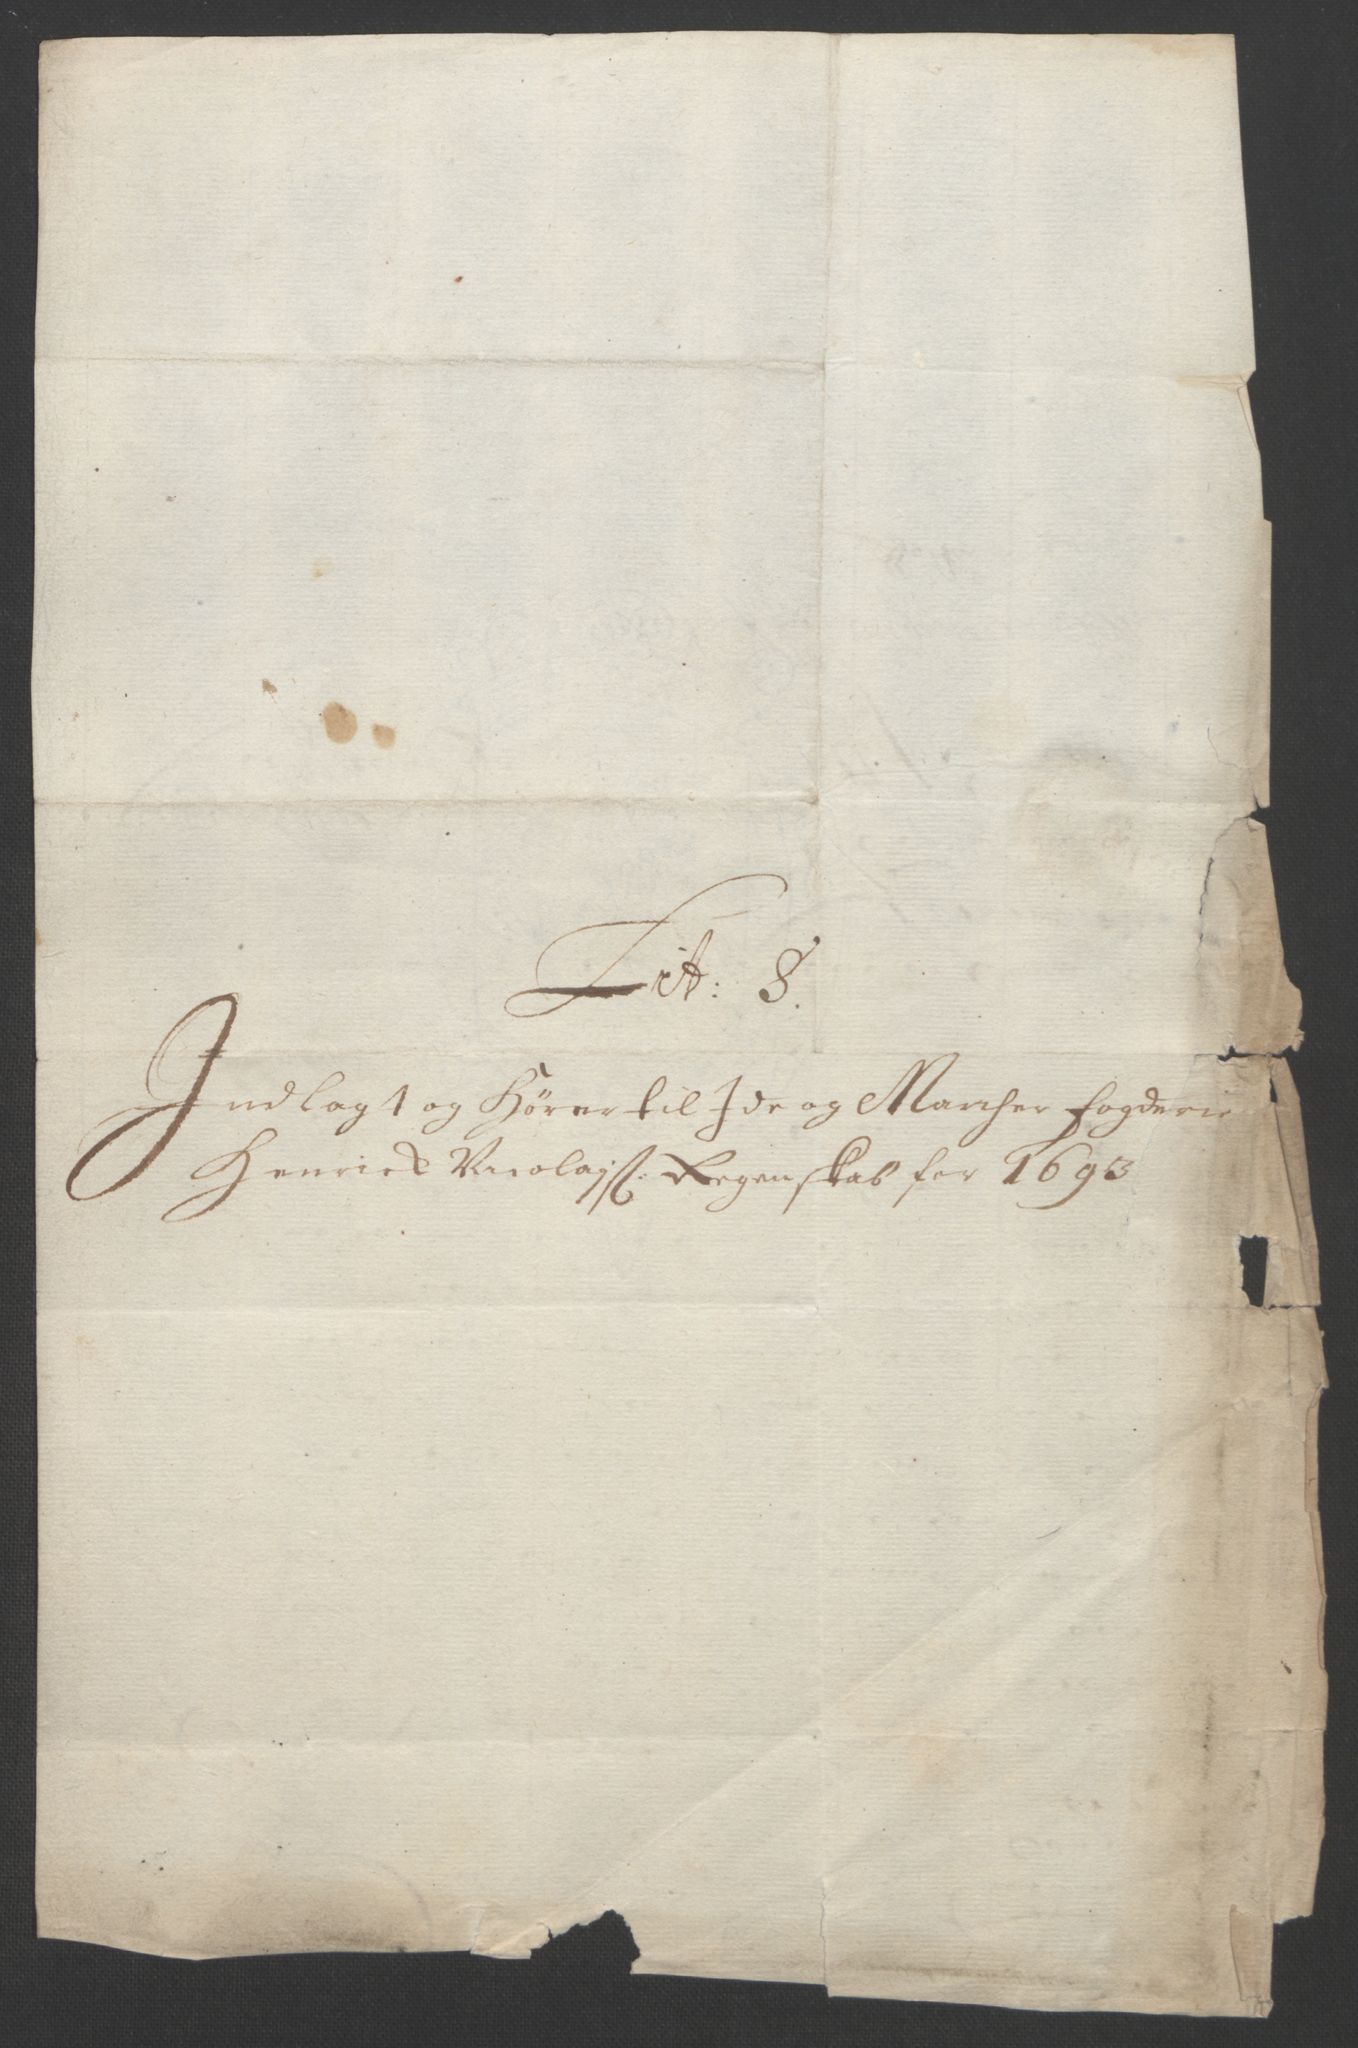 Lit: S.
Indlagt og Hører til Ide og Marcher fogderie
Henrick Nicolajss: Regenskab for 1693